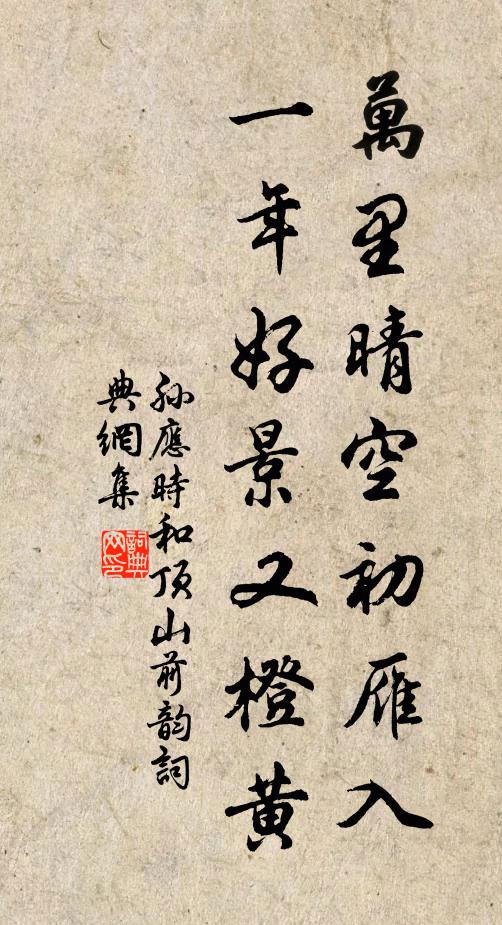 萬里晴空初雁入
一年好景又橙黃
孙應時和頂山前韵詞
典網集
詞典
网印